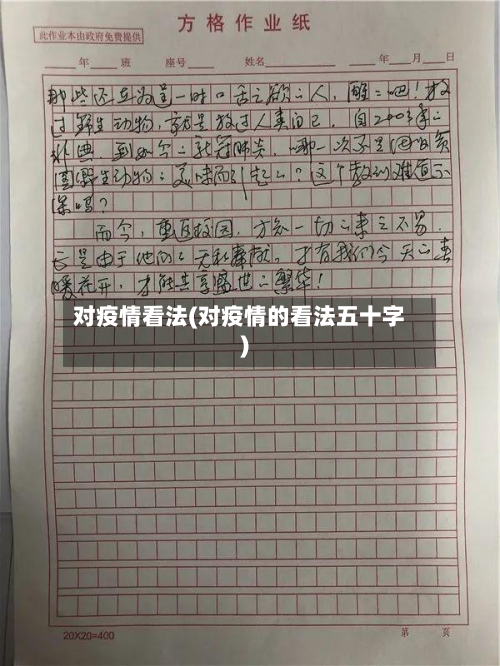 方格作业纸
此作业本由政府免费提供
年 班 座号 姓名 年 月 日
那些还在为逞一时口舌之欲的人，醒醒吧！放
过野生动物，就是放过人类自己，自2003年的
非典，到如今的新冠肺炎，哪一次不是因吃食
野生动物的美味而引起的？这个教训难道不
深吗？
而今，重返校园，方知一切的来之不易，
这是由于他们的无私奉献，才有我们今天的春
暖花开，才能共享盛世的繁华！
对疫情看法(对疫情的看法五十字
)
20X20=400
第 页